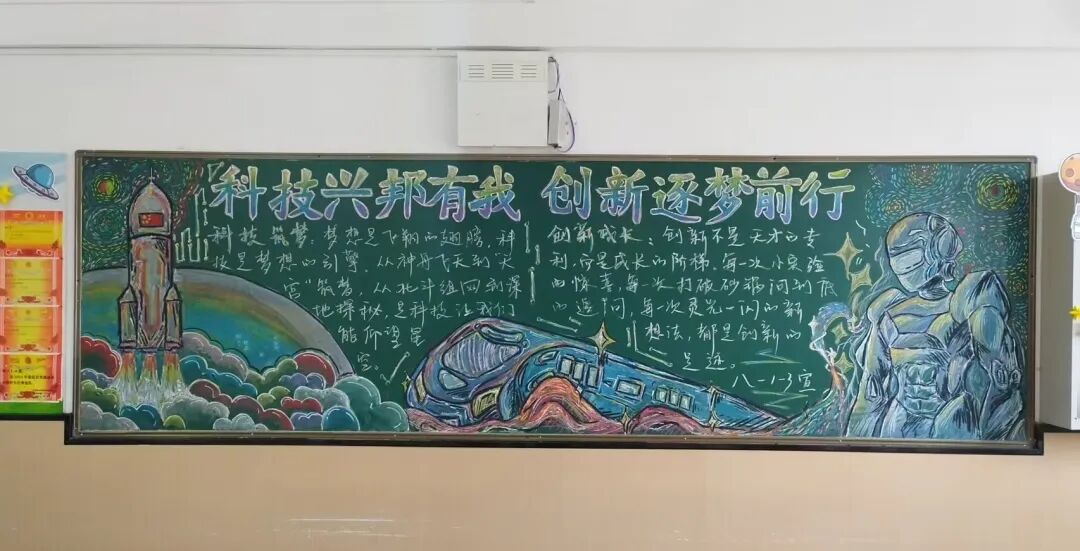 『科技兴邦有我 创新逐梦前行
科技筑梦：梦想是飞翔的翅膀，科
技是梦想的引擎。从神舟飞天到"天
宫"筑梦，从北斗组网到深
地探秘，是科技让我们
能仰望星
空。
创新成长：创新不是天才的专
利，而是成长的阶梯。每一次小实验
的惊喜，每一次打破砂锅问到底
的追问，每次灵光一闪的新
想法，都是创新的
足迹。
八一1-3宣